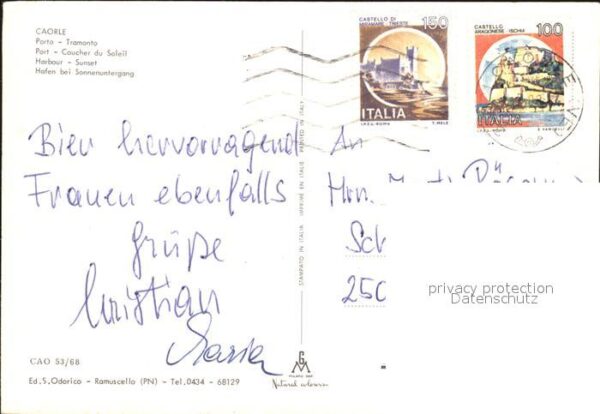 CAORLE
Porto - Tramonto
Port - Coucher du Soleil
Harbour - Sunset
Hafen bei Sonnenuntergang
CASTELLO DI
MIRAMARE - TRIESTE
150
ITALIA
I.P.Z.S. - ROMA
CASTELLO
ARAGONESE ISCHIA
100
ITALIA
I.P.Z.S. - ROMA
Bier hervorragend
Frauen ebenfalls
Grüße
Christian
Maria
STAMPATO IN ITALIA
An
Hrn.
Sch
250
privacy protection
Datenschutz
CAO 53/68
Ed. S. Odorico - Ramuscello (PN) - Tel. 0434 - 68129
Natural colours